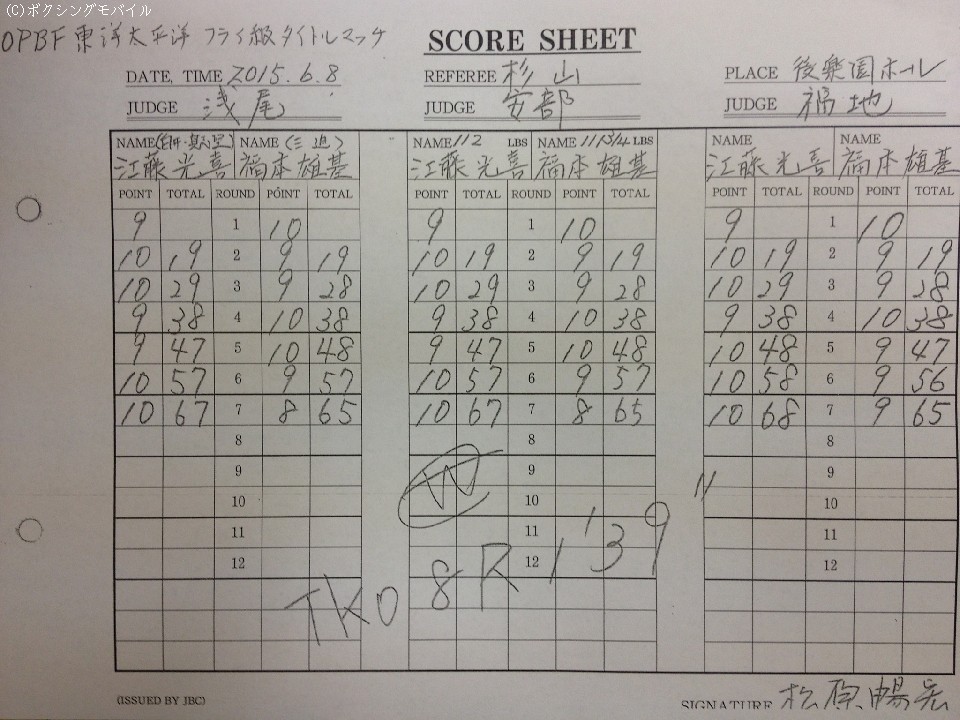 (C)ボクシングモバイル
OPBF 東洋太平洋 フライ級タイトルマッチ
SCORE SHEET
DATE, TIME 2015.6.8 REFEREE 杉山 PLACE 後楽園ホール
JUDGE 浅尾 JUDGE 安部 JUDGE 福地
NAME (白井・具志堅) NAME (三迫) NAME 112 LBS NAME 111 3/4 LBS NAME NAME
江藤光喜 福本雄基 江藤光喜 福本雄基 江藤光喜 福本雄基
POINT TOTAL ROUND POINT TOTAL POINT TOTAL ROUND POINT TOTAL POINT TOTAL ROUND POINT TOTAL
9 1 10 9 1 10 9 1 10
10 19 2 9 19 10 19 2 9 19 10 19 2 9 19
10 29 3 9 28 10 29 3 9 28 10 29 3 9 28
9 38 4 10 38 9 38 4 10 38 9 38 4 10 38
9 47 5 10 48 9 47 5 10 48 10 48 5 9 47
10 57 6 9 57 10 57 6 9 57 10 58 6 9 56
10 67 7 8 65 10 67 7 8 65 10 68 7 9 65
8 8 8
9 W 9 9
10 10 10
11 11 11
12 12 12
TKO 8R 1'39"
(ISSUED BY JBC) SIGNATURE 松原暢宏